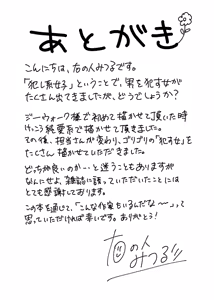 あとがき
こんにちは、右の人みつるです。
「犯し系女子」ということで、男を犯す女が
たくさん出てきましたが、どうでしょうか？
ジーウォーク様で初めて描かせて頂いた時
けっこう純愛系で描かせて頂きました。
その後、担当さんが変わり、ゴリゴリの「犯す女」を
たくさん描かせていただきました。
どっちが良いのか…と迷うこともありますが
なんにせよ、雑誌に載っていただいたことには
とても感謝しております。
この本を通じて、「こんな作家もいるんだな〜…」って
思っていただければ幸いです。ありがとう！
右の人
みつる